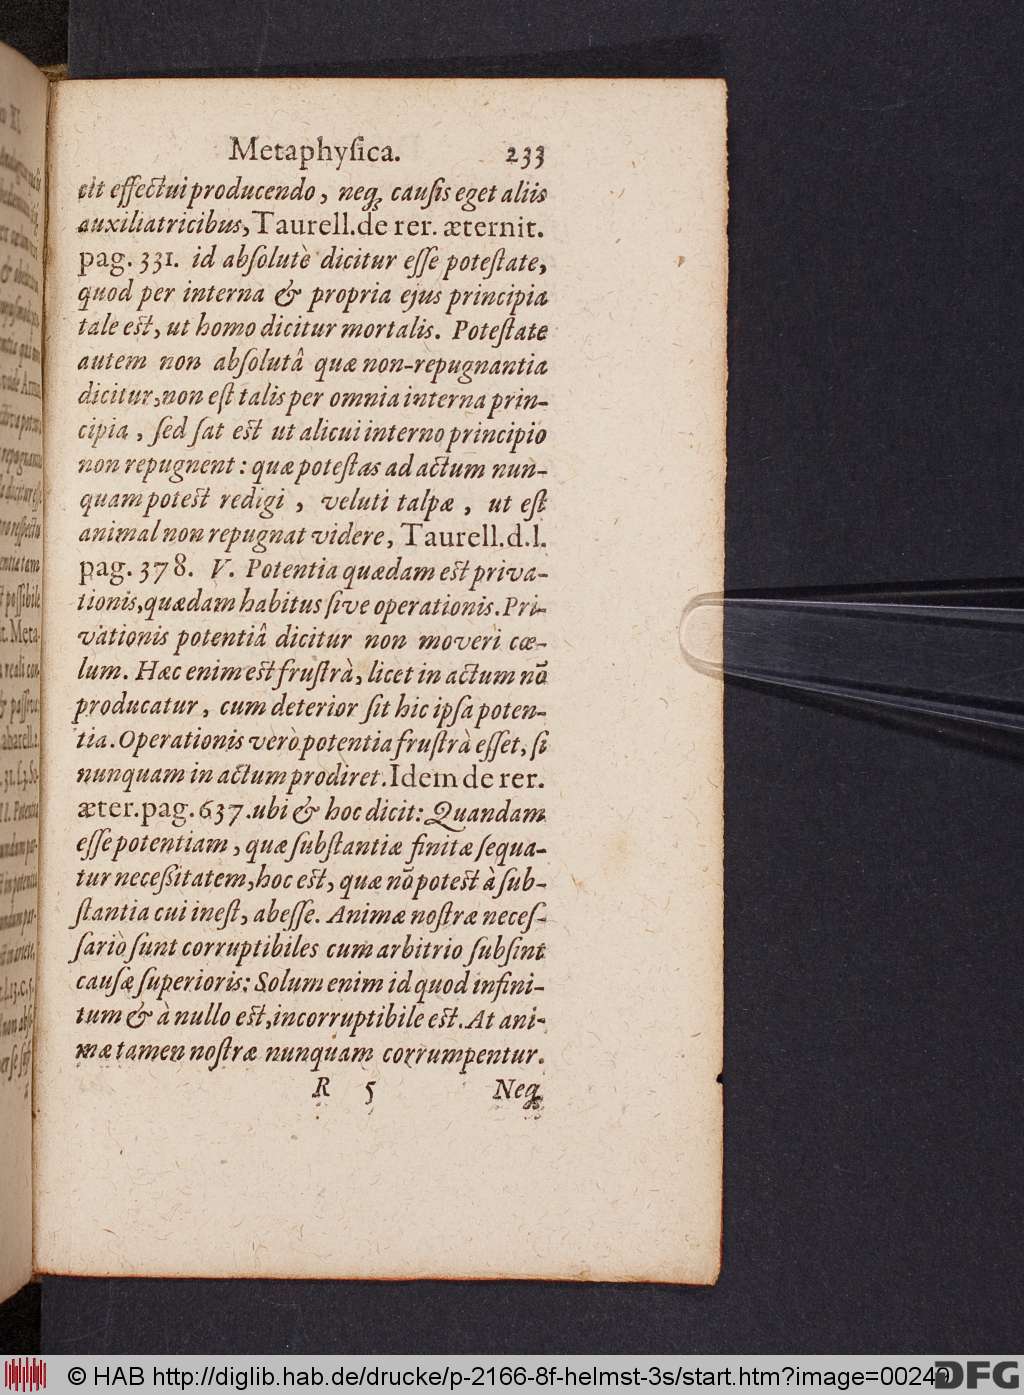 Metaphyſica. 233
cit effectui producendo, neq; cauſis eget aliis
auxiliatricibus, Taurell. de rer. æternit.
pag. 331. id abſolutè dicitur eſſe poteſtate,
quod per interna & propria ejus principia
tale est, ut homo dicitur mortalis. Poteſtate
autem non abſolutâ quæ non-repugnantia
dicitur, non eſt talis per omnia interna prin-
cipia, ſed ſat est ut alicui interno principio
non repugnent: quæ poteſtas ad actum nun-
quam potest redigi, veluti talpæ, ut eſt
animal non repugnat videre, Taurell. d. l.
pag. 378. V. Potentia quædam est priva-
tionis, quædam habitus ſive operationis. Pri-
vationis potentiâ dicitur non moveri cæ-
lum. Hæc enim est fruſtrà, licet in actum nō
producatur, cum deterior ſit hic ipſa poten-
tia. Operationis verò potentia fruſtrà eſſet, ſi
nunquam in actum prodiret. Idem de rer.
æter. pag. 637. ubi & hoc dicit: Quandam
eſſe potentiam, quæ ſubſtantiæ finitæ ſequa-
tur neceſſitatem, hoc est, quæ nō potest à ſub-
ſtantia cui ineſt, abeſſe. Animæ noſtræ neceſ-
ſariò ſunt corruptibiles cum arbitrio ſubſint
cauſæ ſuperioris: Solum enim id quod infini-
tum & à nullo est, incorruptibile est. At ani-
mæ tamen noſtræ nunquam corrumpentur.
R 5 Neq;
© HAB http://diglib.hab.de/drucke/p-2166-8f-helmst-3s/start.htm?image=00249
DFG